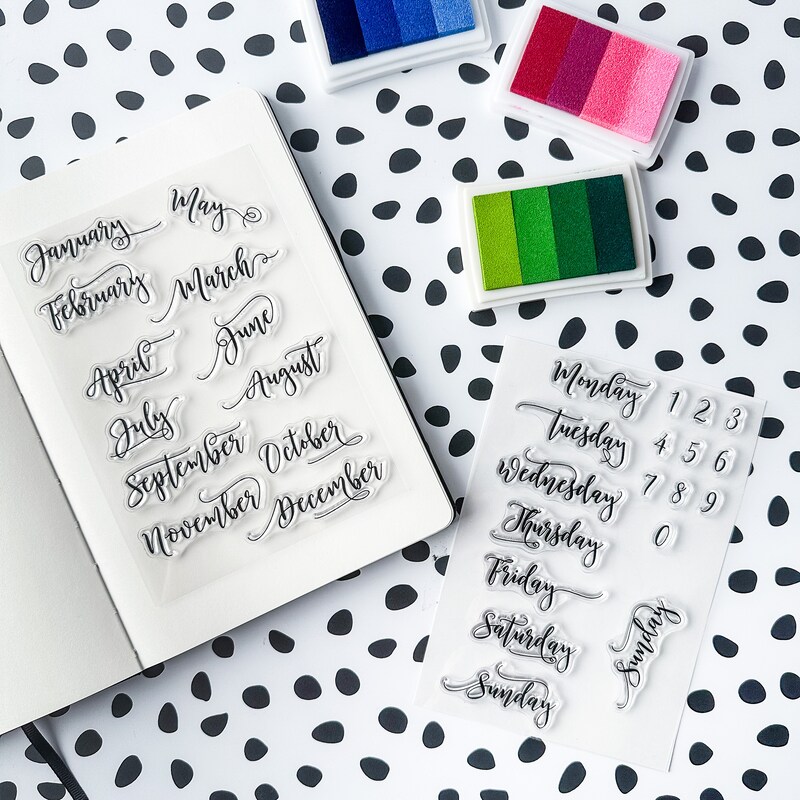 January May
February March
April June
July August
September October
November December
Monday
Tuesday
Wednesday
Thursday
Friday
Saturday
Sunday
1 2 3
4 5 6
7 8 9
0
Sunday